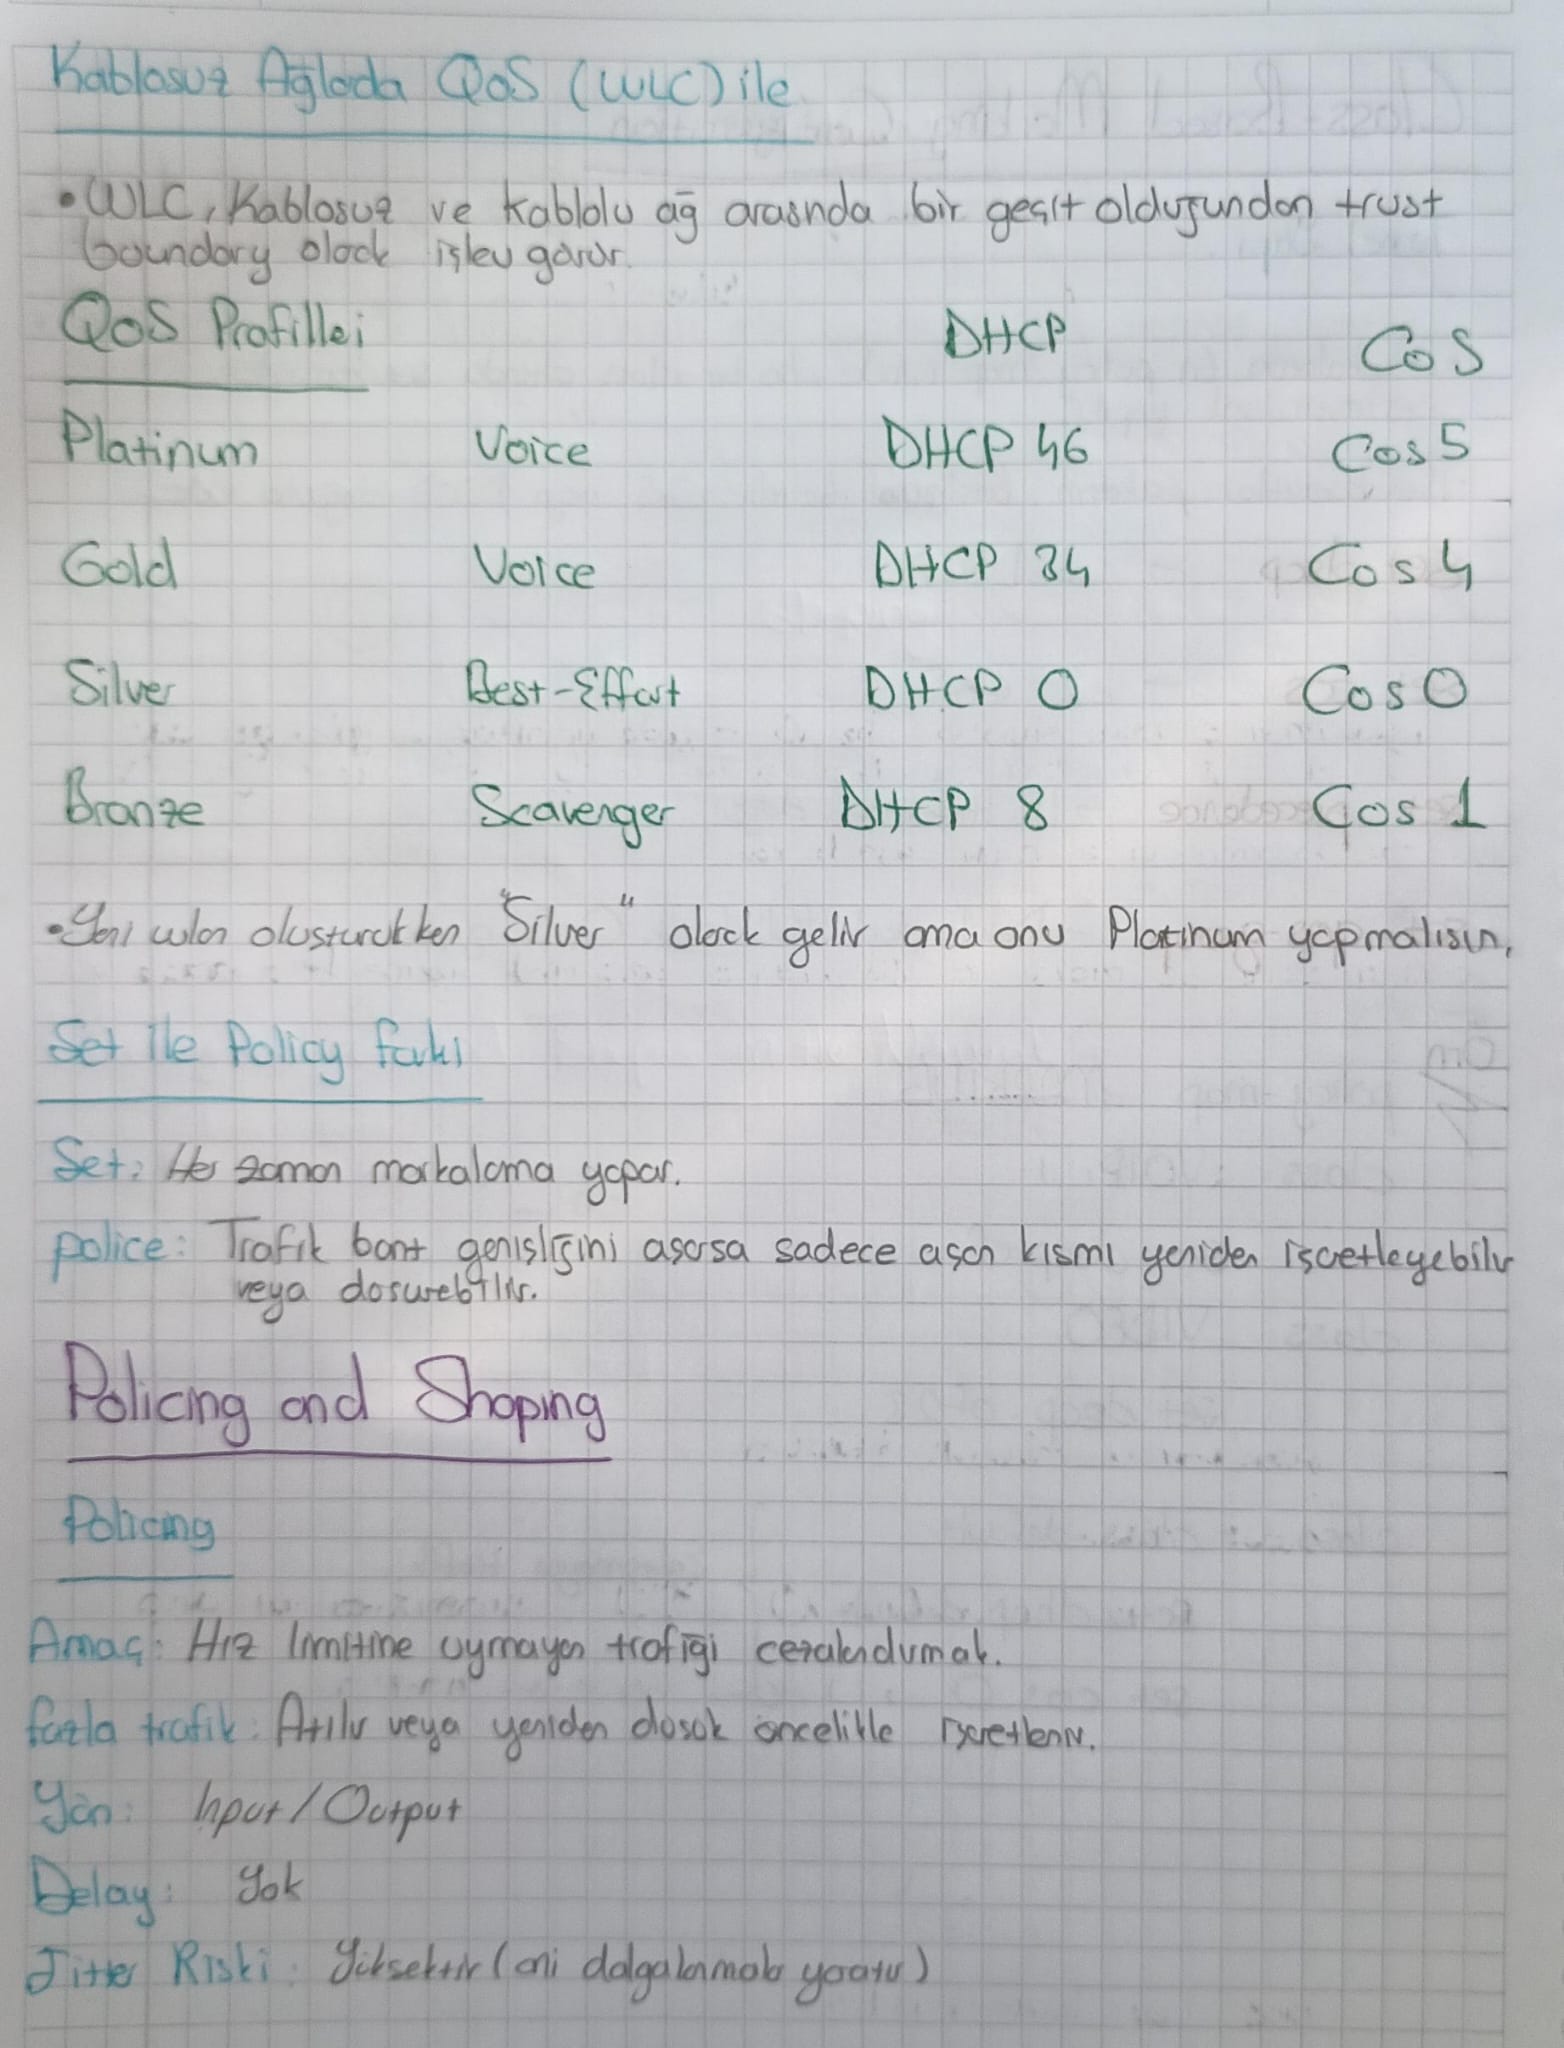 Kablosuz Ağlada QoS (WLC) ile
• WLC, Kablosuz ve kablolu ağ arasında bir geçit olduğundan trust
boundary olarak işlev görür.
QoS Profillei DHCP CoS
Platinum Voice DHCP 46 Cos 5
Gold Voice DHCP 34 Cos 4
Silver Best-Effort DHCP 0 Cos 0
Bronze Scavenger DHCP 8 Cos 1
• Yeni wlan oluştururken "Silver" olarak gelir ama onu Platinum yapmalısın.
Set ile Policy farkı
Set: Her zaman markalama yapar.
police: Trafik bant genişliğini aşarsa sadece aşan kısmı yeniden işaretleyebilir
veya düşürebilir.
Policing and Shaping
Policing
Amaç: Hız limitine uymayan trafiği cezalandırmak.
fazla trafik: Atılır veya yeniden düşük öncelikle işaretlenir.
Yön: Input/Output
Delay: Yok
Jitter Riski: Yüksektir (ani dalgalanmalar yaratır)